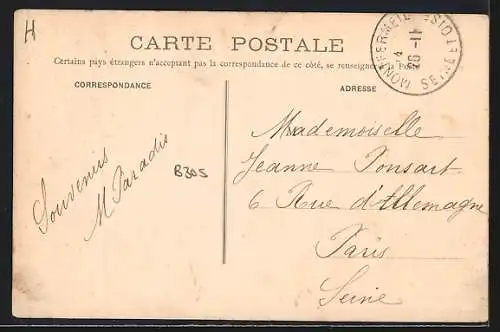 H
CARTE POSTALE
Certains pays étrangers n'acceptant pas la correspondance de ce côté, se renseigner Poste
CORRESPONDANCE
ADRESSE
MONTFERMEIL SEINE-ET-OISE
14-11
26
Souvenirs
M Paradis
B305
Mademoiselle
Jeanne Ponsart
6 Rue d'Allemagne
Paris
Seine